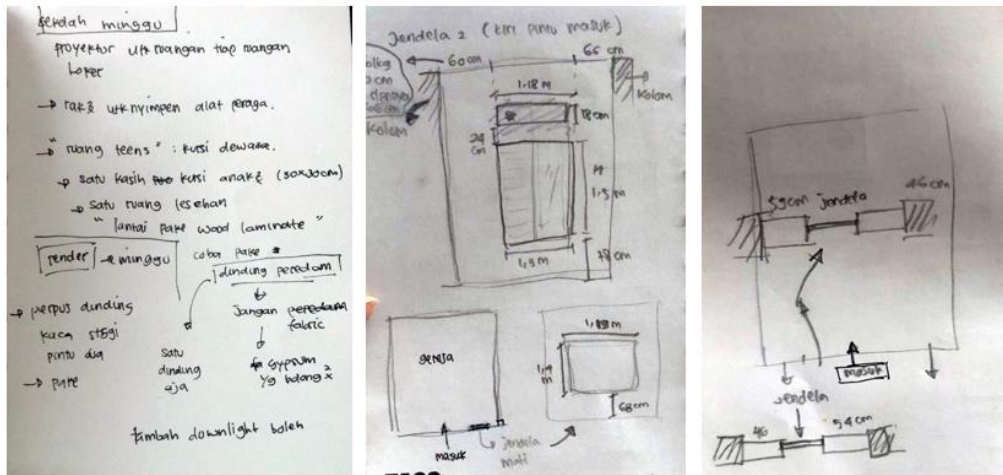 sekolah minggu
proyektor utk ruangan tiap ruangan
loker
→ rak2 utk nyimpen alat peraga.
→ "ruang teens" : kursi dewasa.
→ satu kasih kursi anak2 (30x30cm)
→ satu ruang lesehan
"lantai pake wood laminate"
render → minggu
coba pake *
dinding peredam
→ perpus dinding
kaca
pintu dia
→ pure
satu
dinding
aja
Jangan
fabric
Gypsum
yg bolong2
tambah downlight boleh
Jendela 2 (kiri pintu masuk)
60 cm
66 cm
1,18 m
Kolom
Kolom
18 cm
24
cm
1,5 m
78 cm
gereja
masuk
jendela
mati
m
68 cm
59cm
jendela
46 cm
masuk
jendela
46
54 cm